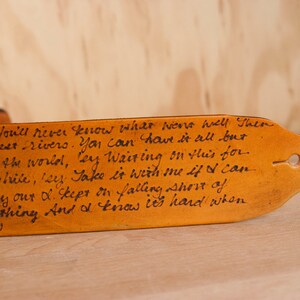 You'll never know what went well Then
est rivers. You can have it all but
the world, hey Waiting on this for
while, hey Take it with me if I can
out I kept on falling short of
thing And I know it's hard when